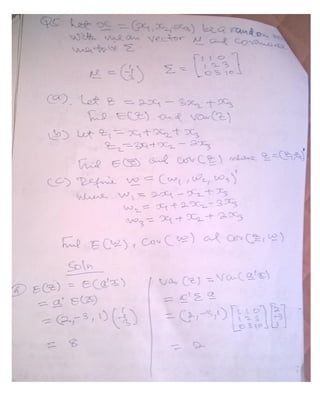 Q5. Let x = (x₁, x₂, x₃) be a random
with mean vector μ and covariance
matrix Σ
μ = Σ = [1 1 0
1 2 3
0 3 10]
(a). Let z = 2x₁ - 3x₂ + x₃
Find E(z) and var(z)
(b) Let z₁ = x₁ + x₂ + x₃
z₂ = 3x₁ + x₂ - 2x₃
Find E(z) and cov(z) where z = (z₁, z₂)
(c) Define w = (w₁, w₂, w₃)'
where w₁ = 2x₁ - x₂ + x₃
w₂ = x₁ + 2x₂ - 3x₃
w₃ = x₁ + x₂ + 2x₃
Find E(w), cov(w) and cov(z, w)
Soln
E(z) = E(a'x)
= a' E(x)
= (2, -3, 1)
= 8
Var(z) = Var(a'x)
= a' Σ a
= (2, -3, 1) [1 1 0
1 2 3
0 3 10] [2
-3
1]
= 2